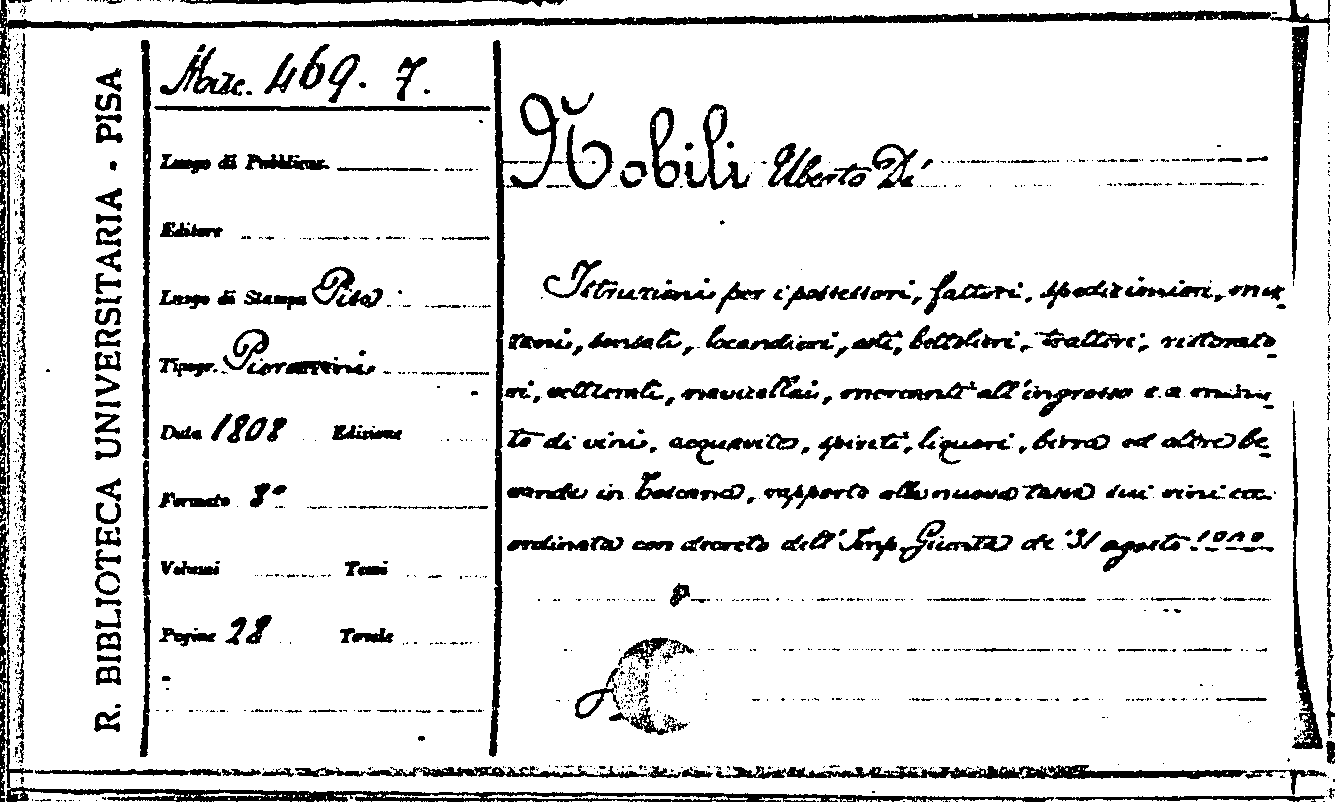 R. BIBLIOTECA UNIVERSITARIA - PISA
Misc. 469. 7.
Luogo di Pubblicaz.
Editore
Luogo di Stampa Pisa
Tipogr. Pieraccini
Data 1808 Edizione
Formato 8º
Volumi Tomi
Pagine 28 Tavole
Nobili Uberto De'
Istruzioni per i possessori, fattori, spedizionieri, vet-
turini, sensali, locandieri, osti, bettolieri, trattori, ristorato-
ri, vetturali, navicellai, mercanti all'ingrosso e a minu-
to di vini, acquavite, spiriti, liquori, birra ed altre be-
vande in Toscana, rapporto alla nuova tassa sui vini ecc.
ordinata con decreto dell'Imp. Giunta de' 31 agosto